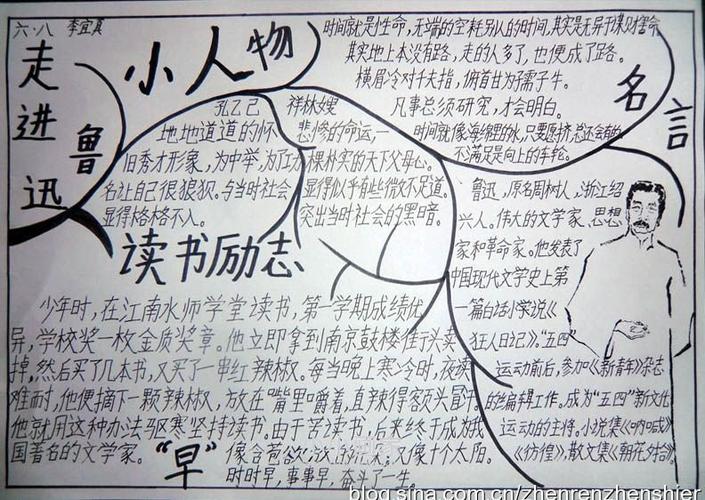 六·八 李宜真
走进鲁迅
小人物
孔乙己
地地道道的怀
旧秀才形象,为中举,为功
名让自己很狼狈。与当时社会
显得格格不入。
祥林嫂
悲惨的命运,一
棵朴实的天下父母心。
显得似乎有些微不足道。
突出当时社会的黑暗。
名言
时间就是生命,无端的空耗别人的时间,其实是无异于谋财害命
其实地上本没有路,走的人多了,也便成了路。
横眉冷对千夫指,俯首甘为孺子牛。
凡事总须研究,才会明白。
时间就像海绵里的水,只要愿挤,总还会有的
不满足是向上的车轮。
鲁迅,原名周树人,浙江绍
兴人。伟大的文学家、思想
家和革命家。他发表了
中国现代文学史上第
一篇白话小说《
狂人日记》。"五四"
运动前后,参加《新青年》杂志
的编辑工作。成为"五四"新文化
运动的主将。小说集《呐喊》
《彷徨》,散文集《朝花夕拾》
读书励志
少年时,在江南水师学堂读书,第一学期成绩优
异,学校奖一枚金质奖章。他立即拿到南京鼓楼街头卖
掉,然后买了几本书,又买了一串红辣椒。每当晚上寒冷时,夜
难耐,他便摘下一颗辣椒,放在嘴里嚼着,直辣得额头冒汗。
他就用这种办法驱寒坚持读书。由于苦读书,后来终于成为我
国著名的文学家。
"早"
像含苞欲放的
又像一个太阳。
时时早,事事早,奋斗了一生
blog.sina.com.cn/zhenrenzhenshier